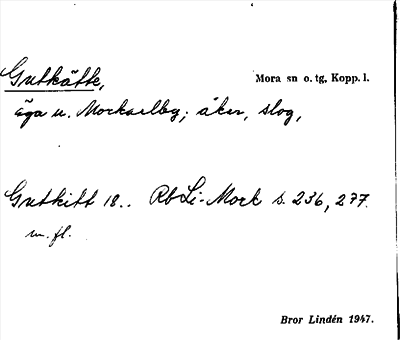 Gutkätte,
Mora sn o. tg, Kopp. l.
äga u. Mockaelby; åker, slog,
Gutkitt 18.. Rb Li-Mock s. 236, 277.
m. fl.
Bror Lindén 1947.